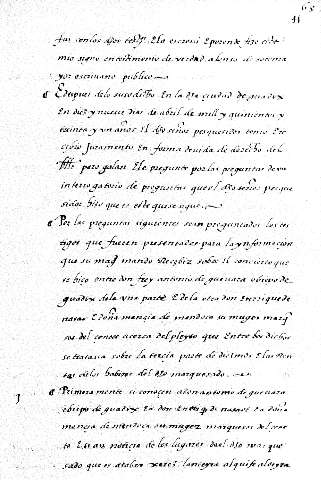 fue con los dhos testigos. E lo escreui E por ende fize este
mio signo en testimonio de verdad. alonso de
escriuano publico
E despues de lo susodicho En la dha ciudad de guadix
En diez y nueue dias de abril de mill y quinientos y
treinta y vn años. El dho señor pesquesidor tomo E re
çibio Juramento En forma deuida de derecho del
pero galan. E le pregunto por las preguntas de vn
interrogatorio de preguntas quel dho señor pesque
sidor hizo que es este que se sigue
Por las preguntas siguientes sean preguntados los tes
tigos que fueren presentados para la ynformacion
que su magt mando Recebir sobre el conçierto que
se hizo entre don frey antonio de gueuara obispo de
guadix de la vna parte E de la otra don Enrrique de
nasao E doña mençia de mendoça su muger marq̃
ses del çenete açerca del pleyto que Entre los dichos
se trataua sobre la terçia parte de diezmos E las Ren
tas de los habizes del dho marquesado
1 Primeramente si conoçen a don antonio de gueuara
obispo de guadix E a don Enrriq̃ de nasao E a doña
mençia de mendoça su muger marqueses del çene
te E si an notiçia de los lugares del dho marque
sado que es xerez lanteyra alquife aldeyre